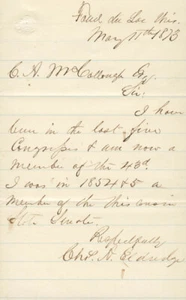 Fond du Lac Wis.
May 11th 1873
C. A. McCollough Esq
Sir,
I have
been in the last five
Congresses & am now a
member of the 43d.
I was in 1854&5 a
member of the Wisconsin
State Senate
Respectfully
Chs. A. Eldredge